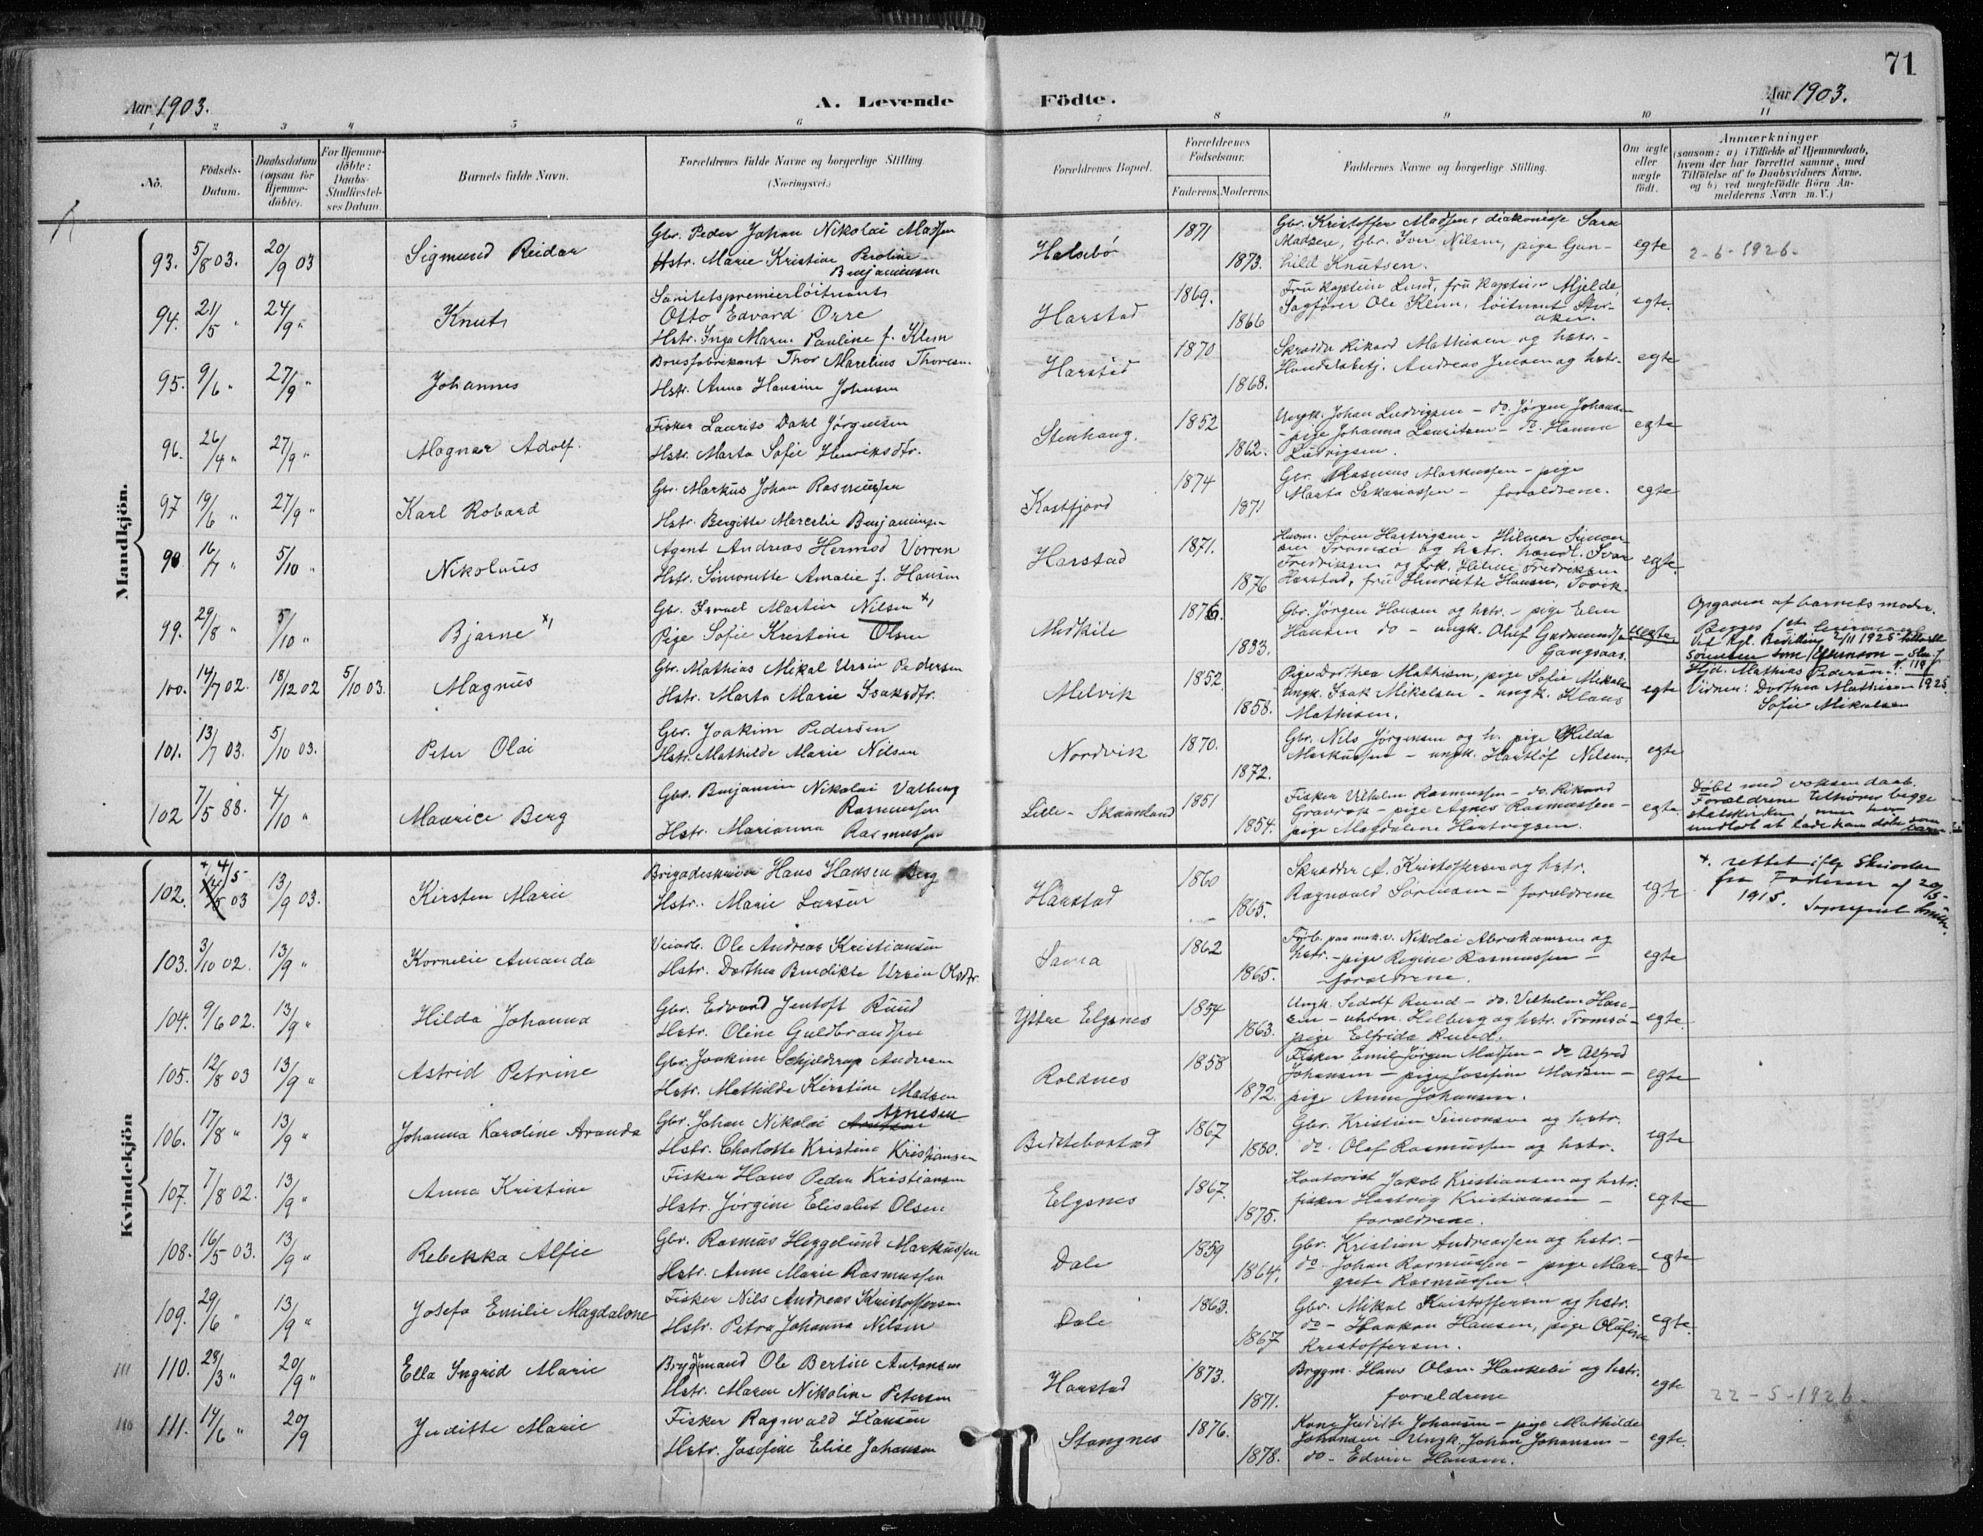 71
Aar 1903.
A. Levende
Födte.
Aar 1903.
1 2 3 4 5 6 7 8 9 10 11
No.
Födsels-Datum.
Daabsdatum (ogsaa for Hjemmedöbte).
For Hjemmedöbte: Daabs-Stadfæstelses Datum.
Barnets fulde Navn.
Forældrenes fulde Navne og borgerlige Stilling (Næringsvei.)
Forældrenes Bopæl.
Forældrenes Födselsaar.
Faderens. Moderens.
Faddernes Navne og borgerlige Stilling.
Om ægte eller uægte födt.
Anmærkninger
(saasom: a) i Tilfælde af Hjemmedaab, hvem der har forrettet samme, med Tilföielse af to Daabsvidners Navne, og b) ved uegtefödte Börn Anmelderens Navn m. V.)
Mandkjön.
93. 5/8 03. 20/9 03 Sigmund Reidar
Gbr. Peder Johan Nikolai Madsen
Hstr. Marie Kristine Peroline Benjaminsen
Halsebø 1871 1873.
Gbr. Kristoffer Madsen, diakonesse Sara
Madsen, Gbr. Iver Nilsen, pige Gun-
hild Knutsen.
egte 2-6-1926.
94. 21/5 " 24/9 " Knut
Sanitetspremierløitnant
Otto Edvard Orre
Hstr. Inga Marie Pauline f. Klem
Harstad 1869. 1866
Fru kaptein Lund, fru kaptein Mjelde,
Sagfører Ole Klem, løitnant Stor-
aker.
egte.
95. 9/6 " 27/9 " Johannes
Brusfabrikant Thor Marelius Thoresen.
Hstr. Anna Hansine Johnsen
Harstad 1870 1868.
Skrædder Rikard Mathisen og hstr. -
Handelsbetj. Andreas Jensen og hstr.
egte
96. 26/4 " 27/9 " Magnar Adolf.
Fisker Laurits Dahl Jørgensen
Hstr. Marta Sofie Henriksdtr.
Stenhaug. 1852 1862.
Ungk. Johan Ludvigsen - do. Jørgen Johansen
- pige Johanna Lauritsen - do. Hanna
Ludvigsen.
egte
97 19/6 " 27/9 " Karl Robard
Gbr. Markus Johan Rasmussen
Hstr. Bergitte Marcelie Benjaminsen
Kastfjord 1874 1871
Gbr. Rasmus Markussen - pige
Marta Sakariassen - forældrene.
egte
98 16/7 " 5/10 " Nikolaus
Agent Andreas Hermod Vorren
Hstr. Simonette Amalie f. Hansen
Harstad 1871. 1876
Husm. Søren Hartvigsen - Hilmar Simon-
sen Tromsø og hstr. handl. Ivar
Fredriksen og frk. Helene Fredriksen
Harstad, fru Henriette Hansen, Tovik.
egte.
99. 29/8 " 5/10 " Bjarne x)
Gbr. Israel Martin Nilsen x)
Pige Sofie Kristine Olsen
Medkile 1876 1883.
Gbr. Jørgen Hansen og hstr. - pige Elen
Hansen do - ungk. Oluf Gudmundsen
Gangsaas.
uegte.
Opgaven af barnets moder.
Begges 1ste leiermaal
Ved Kgl. Bevilling 2/11 1925
100. 14/7 02. 18/12 02 5/10 03. Magnus
Gbr. Mathias Mikal Ursin Pedersen
Hstr. Marta Marie Isaksdtr.
Melvik 1852. 1858.
Pige Dorthea Mathisen, pige Sofie Mikalsen
ungk. Isak Mikalsen - ungk. Klaus
Mathisen.
egte
Hjd. Mathias Pedersen.
Vidner: Dorthea Mathisen
Sofie Mikalsen
101. 13/7 03. 5/10 03. Peter Olai
Gbr. Joakim Pedersen
Hstr. Mathilde Marie Nilsen
Nordvik 1870. 1872.
Gbr. Nils Jørgensen og h. pige Hilda
Markussen - ungk. Hartløf Nilsen.
egte
102 7/5 88. 4/10 " Maurice Berg
Gbr. Benjamin Nikolai Valberg Rasmussen
Hstr. Marianna Rasmussen
Lille-Skaanland 1851 1854.
Fisker Vilhelm Rasmussen - do. Rikard
Gravrok - pige Agnes Rasmussen -
pige Magdalene Hartvigsen.
egte
Døbt med voksen daab.
Forældrene tilhører begge
statskirken men
undlod at lade ham døbe som barn.
Kvindekjön
102. + 4/5 03 13/9 03. Kirsten Marie
Brigadeskriver Hans Hansen Berg
Hstr. Marie Larsen
Harstad 1860 1865.
Skrædder A. Kristoffersen og hstr.
Ragnvald Sørensen - forældrene
egte
+. rettet iflg Skrivelse
fra Faderen af 20/5-
1915.
103. 3/10 02. 13/9 " Kornelie Amanda
Veiarb. Ole Andreas Kristiansen
Hstr. Dorthea Bendikte Ursin Olsdtr.
Sama 1862 1865.
Nikolai Abrahamsen og
hstr. - pige Regine Rasmussen -
forældrene.
egte
104. 9/6 02. 13/9 " Hilda Johanna
Gbr. Edvard Jentoft Ruud
Hstr. Oline Guldbrandsen
Yttre Elgsnes 1854 1863.
Ungk. Sedolf Ruud - do. Vilhelm Han-
sen - uhrm. Helberg og hstr. Tromsø -
pige Elfrida Ruud.
egte.
105. 12/8 03 13/9 " Astrid Petrine
Gbr. Joakim Schjelderup Andersen
Hstr. Mathilde Kirstine Madsen
Roldnes 1858 1872.
Fisker Emil Jørgen Madsen - do Alfred
Johansen - pige Josefine Madsen -
pige Anne Johansen.
egte
106. 17/8 " 13/9 " Johanna Karoline Aranda
Gbr. Johan Nikolai Arnesen
Hstr. Charlotte Kristine Kristiansen
Bessebostad 1867 1880.
Gbr. Kristian Simonsen og hstr.
do. Olaf Rasmussen og hstr.
egte
107. 7/8 02. 13/9 " Anna Kristine
Fisker Hans Peder Kristiansen
Hstr. Jørgine Elisabet Olsen
Elgsnes 1867. 1875.
Kontorist Jakob Kristiansen og hstr.
fisker Hartvig Kristiansen -
forældrene.
egte
108. 16/5 03. 13/9 " Rebekka Alfie
Gbr. Rasmus Heggelund Markussen
Hstr. Anne Marie Rasmussen
Dale 1859 1864.
Gbr. Kristian Andreassen og hstr. -
do. Johan Rasmussen - pige Mar-
grete Rasmussen.
egte
109. 29/6 " 13/9 " Josefa Emilie Magdalone
Fisker Nils Andreas Kristoffersen
Hstr. Petra Johanna Nilsen
Dale 1863. 1867
Gbr. Mikal Kristoffersen og hstr.
do - Haakon Hansen, pige Olufine
Kristoffersen.
egte.
111 110. 28/3 " 20/9 " Ella Ingrid Marie
Brygmand Ole Bertin Antonsen
Hstr. Maren Nikoline Petersen
Harstad 1873. 1871.
Brygm. Hans Olsen Hankebø og hstr.
forældrene
egte 22-5-1926.
110 111. 14/6 " 20/9 Juditte Marie
Fisker Ragnvald Hansen
Hstr. Josefine Elise Johansen
Stangnes 1876. 1878.
Kone Juditte Johansen - pige Mathilde
Johansen - Ungk. Johan Johansen -
do - Edvin Hansen.
egte.